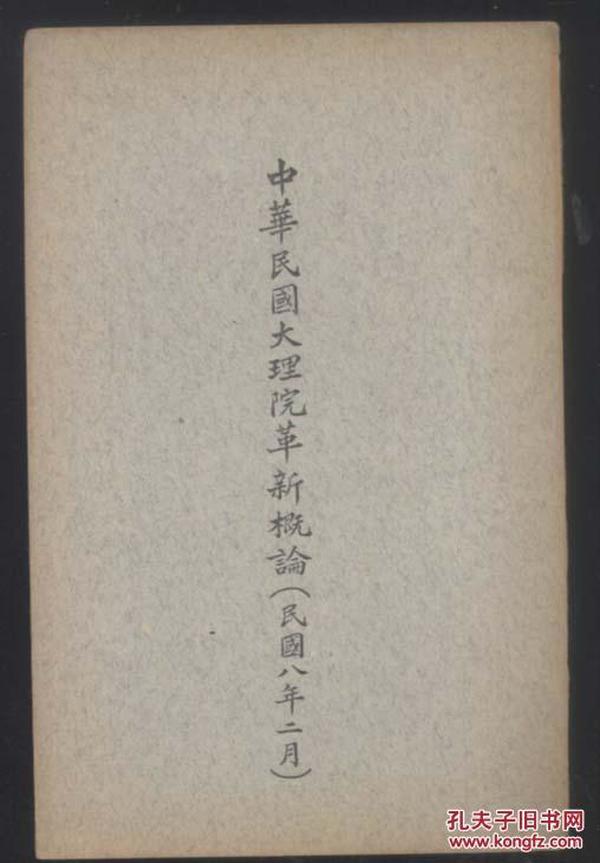 中華民國大理院革新概論(民國八年二月)
孔夫子旧书网
www.kongfz.com